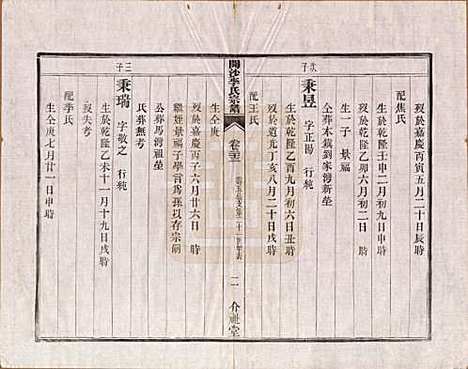 歿於嘉慶丙寅五月二十日辰時
配焦氏
生於乾隆壬申二月初九日申時
歿於乾隆乙卯六月初二日 時
生一子 景福
仝葬本鎮劉家灣新塋
次子
秉昱 字正陽 行純
生於乾隆乙酉九月初六日丑時
歿於道光丁亥八月二十日戌時
配王氏
生仝庚 時
開沙李氏宗譜
二
介祉堂
歿於嘉慶丙子六月廿六日 時
繼姪景福子學言為孫以存宗嗣
公葬馬灣祖塋
氏葬無考
三子
秉瑞 字敬之 行純
生於乾隆乙未十一月十九日戌時
歿失考
配季氏
生仝庚七月廿一日申時